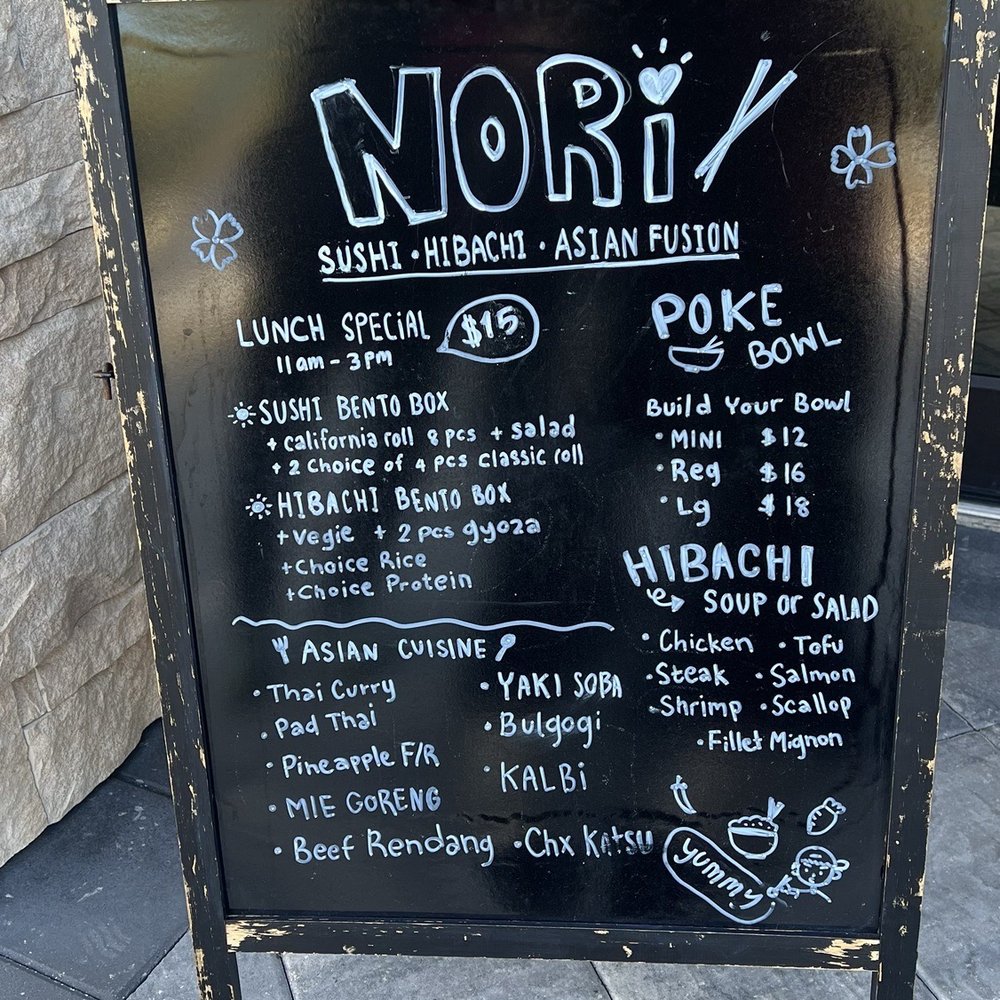 NORi
SUSHI • HIBACHI • ASIAN FUSION
LUNCH SPECiAL $15
11am - 3pm
SUSHI BENTO BOX
+ california roll 8 pcs + salad
+ 2 Choice of 4 pcs classic roll
HIBACHI BENTO BOX
+ Vegie + 2 pcs gyoza
+ Choice Rice
+ Choice Protein
POKE
BOWL
Build Your Bowl
• MINI $12
• Reg $16
• Lg $18
HIBACHI
SOUP OR SALAD
• Chicken • Tofu
• Steak • Salmon
• Shrimp • Scallop
• Fillet Mignon
ASIAN CUISINE
• Thai Curry • YAKI SOBA
• Pad Thai • Bulgogi
• Pineapple F/R • KALBi
• MIE GORENG
• Beef Rendang • Chx Katsu
yummy